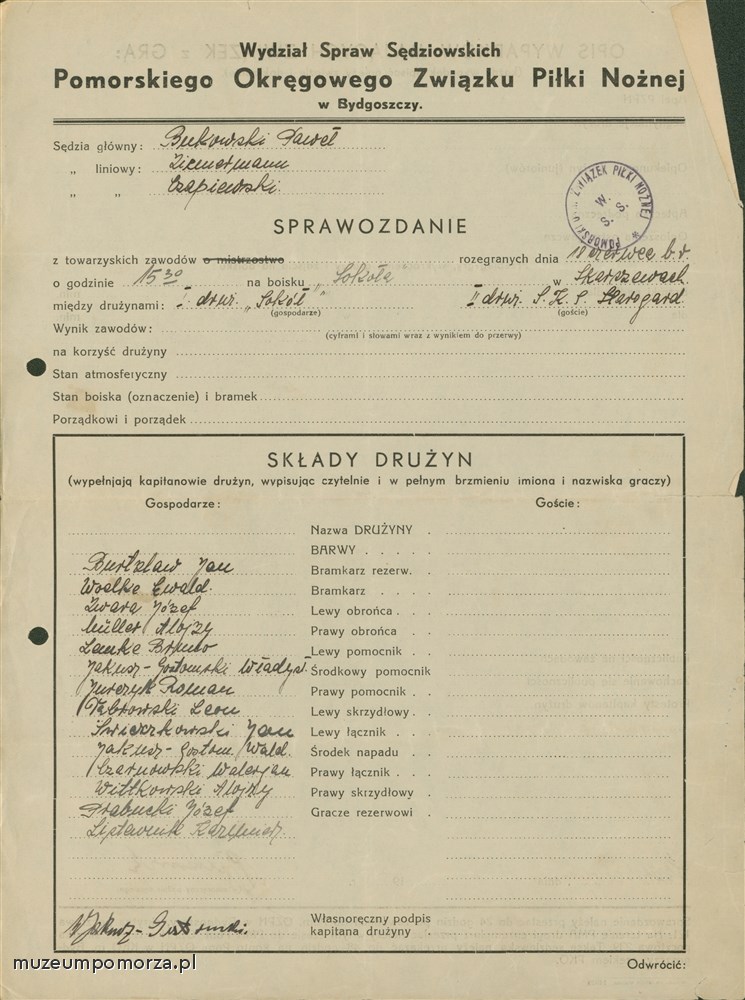 Wydział Spraw Sędziowskich
Pomorskiego Okręgowego Związku Piłki Nożnej
w Bydgoszczy.
Sędzia główny: Bukowski Paweł
„ liniowy: Ziemermann
„ „ Czapiewski
POMORSKI OKR. ZWIĄZEK PIŁKI NOŻNEJ
W.
S. S.
SPRAWOZDANIE
z towarzyskich zawodów o mistrzostwo rozegranych dnia 18 czerwca b.r.
o godzinie 15 30 na boisku „Sokoła" w Skarszewach.
między drużynami: I druż. „Sokół" II druż. S.K.S. Starogard
(gospodarze) (goście)
Wynik zawodów:
(cyframi i słowami wraz z wynikiem do przerwy)
na korzyść drużyny
Stan atmosferyczny
Stan boiska (oznaczenie) i bramek
Porządkowi i porządek
SKŁADY DRUŻYN
(wypełnjają kapitanowie drużyn, wypisując czytelnie i w pełnym brzmieniu imiona i nazwiska graczy)
Gospodarze: Goście:
Nazwa DRUŻYNY .
BARWY . . . . .
Burtzlaw Jan Bramkarz rezerw. .
Woelke Ewald. Bramkarz . . . .
Zwara Józef Lewy obrońca . . .
Müller Alojzy Prawy obrońca . .
Lemke Bruno Lewy pomocnik . .
Jakusz-Gostomski Władys. Środkowy pomocnik
Jurczyk Roman Prawy pomocnik . .
Dąbrowski Leon Lewy skrzydłowy . .
Świeczkowski Jan Lewy łącznik . . .
Jakusz-Gostom. Wald. Środek napadu . .
Czarnowski Walerjan Prawy łącznik . . .
Wittkowski Alojzy Prawy skrzydłowy .
Prabucki Józef Gracze rezerwowi .
Kazimierz.
W Jakusz-Gostomski. Własnoręczny podpis
kapitana drużyny .
Odwrócić:
muzeumpomorza.pl